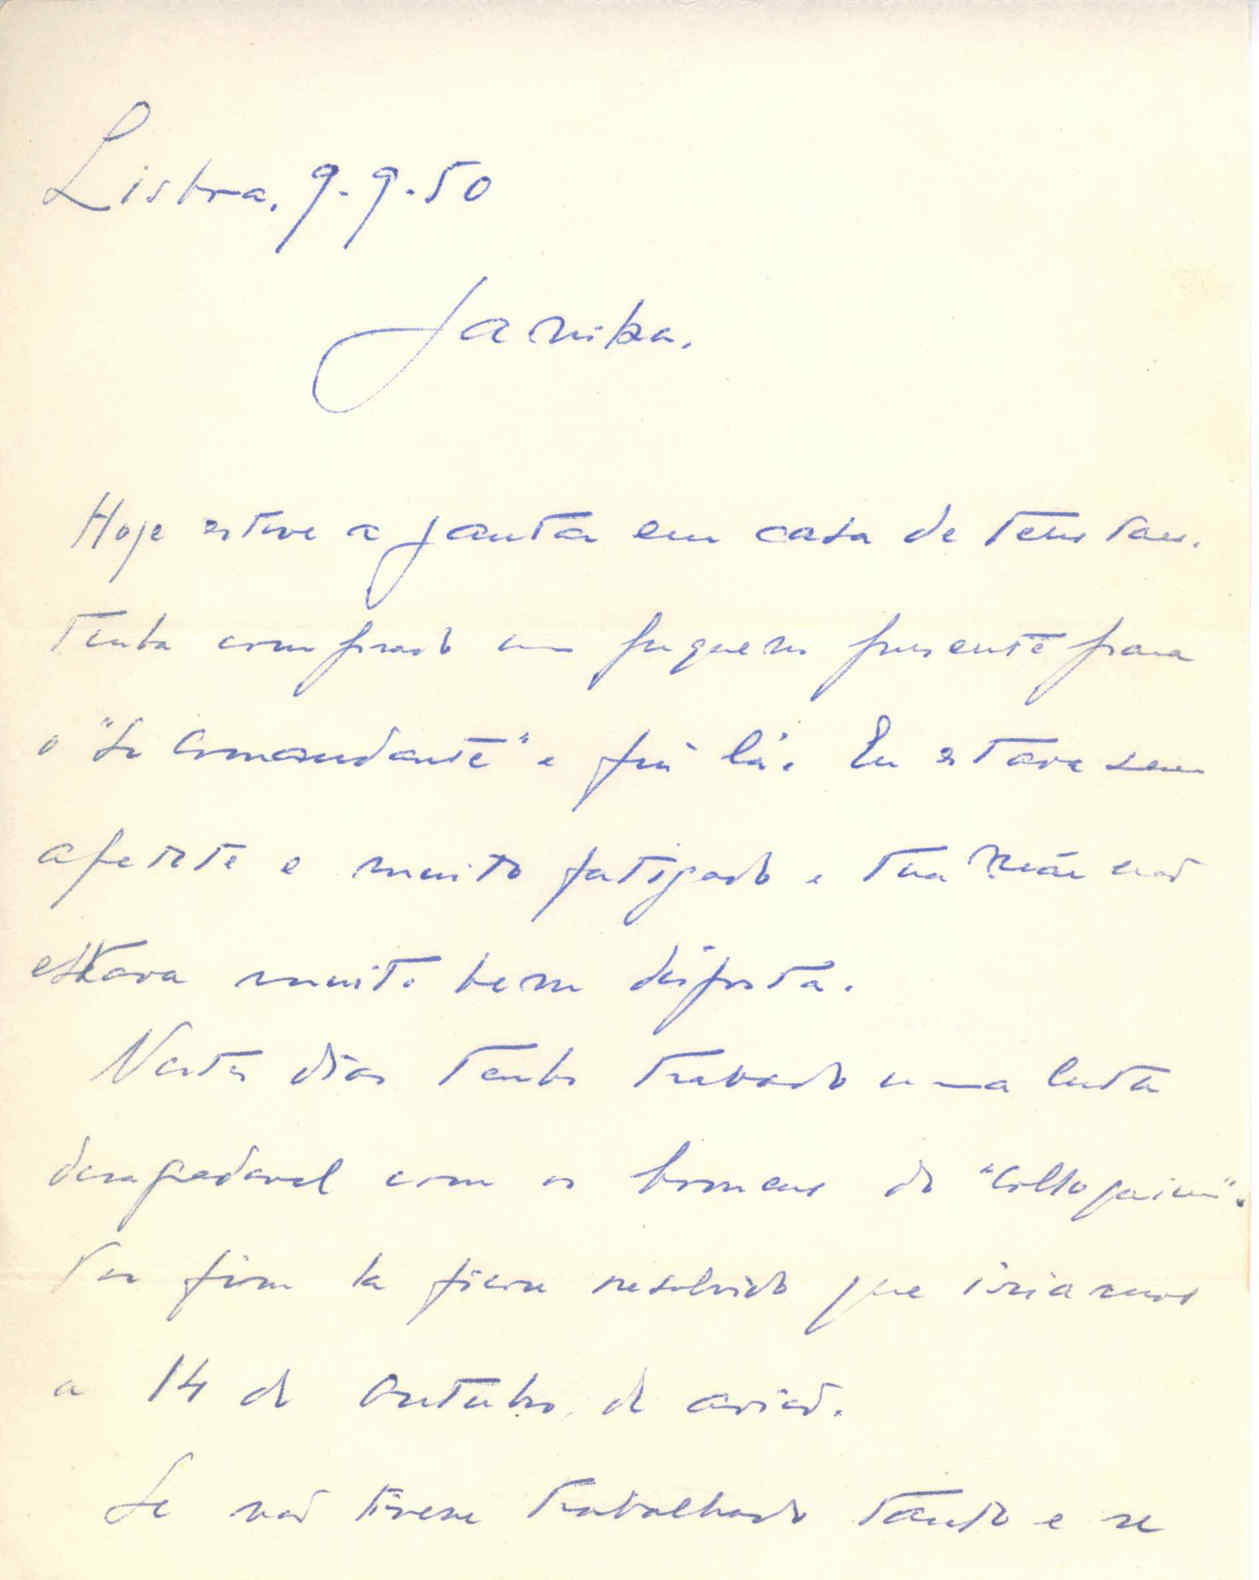 Lisboa, 9-9-50
Janika.
Hoje estive a jantar em casa de teus tios.
Tinha comprado um pequeno presente para
o "Comandante" e fui lá. Eu estava sem
apetite e muito fatigado e tua Mãe não
estava muito bem disposta.
Nestes dias tenho travado uma luta
desagradavel com os homens do "Colloquium".
Por fim la ficou resolvido que iriamos
a 14 de Outubro, de avião.
Se não tivesse trabalhado tanto e se